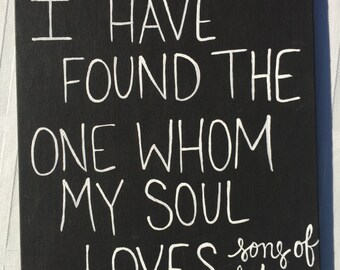 I HAVE
FOUND THE
ONE WHOM
MY SOUL
LOVES
song of